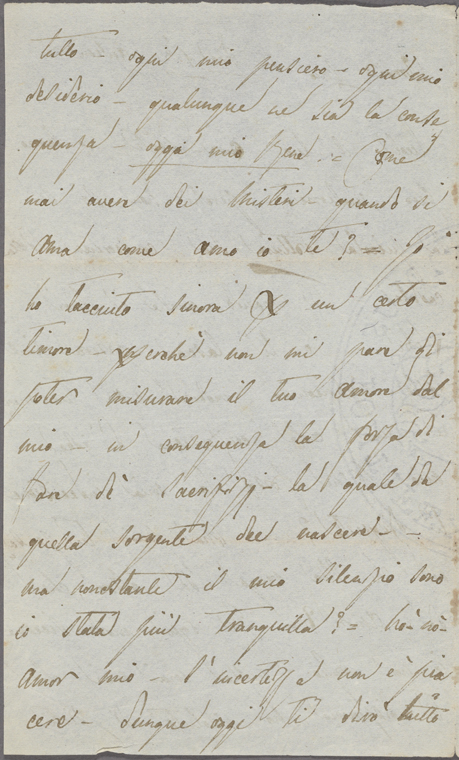 tutto ogni mio pensiero – ogni mio
desiderio – qualunque ne sia la conse
guenza – oggi mio bene – = Come
mai avere dei Misteri – quando si
ama come amo io te? = Io
ho tacciuto sinora p un certo
timore – perchè non mi pare di
poter misurare il tuo amore dal
mio – in conseguenza la forza di
fare dè sacrifizj – la quale da
quella sorgente dee nascere – –
ma nonostante il mio silenzio sono
io stata più tranquilla? = nò – nò –
Amor mio – l'incertezza non è pia
cere – dunque oggi ti dirò tutto